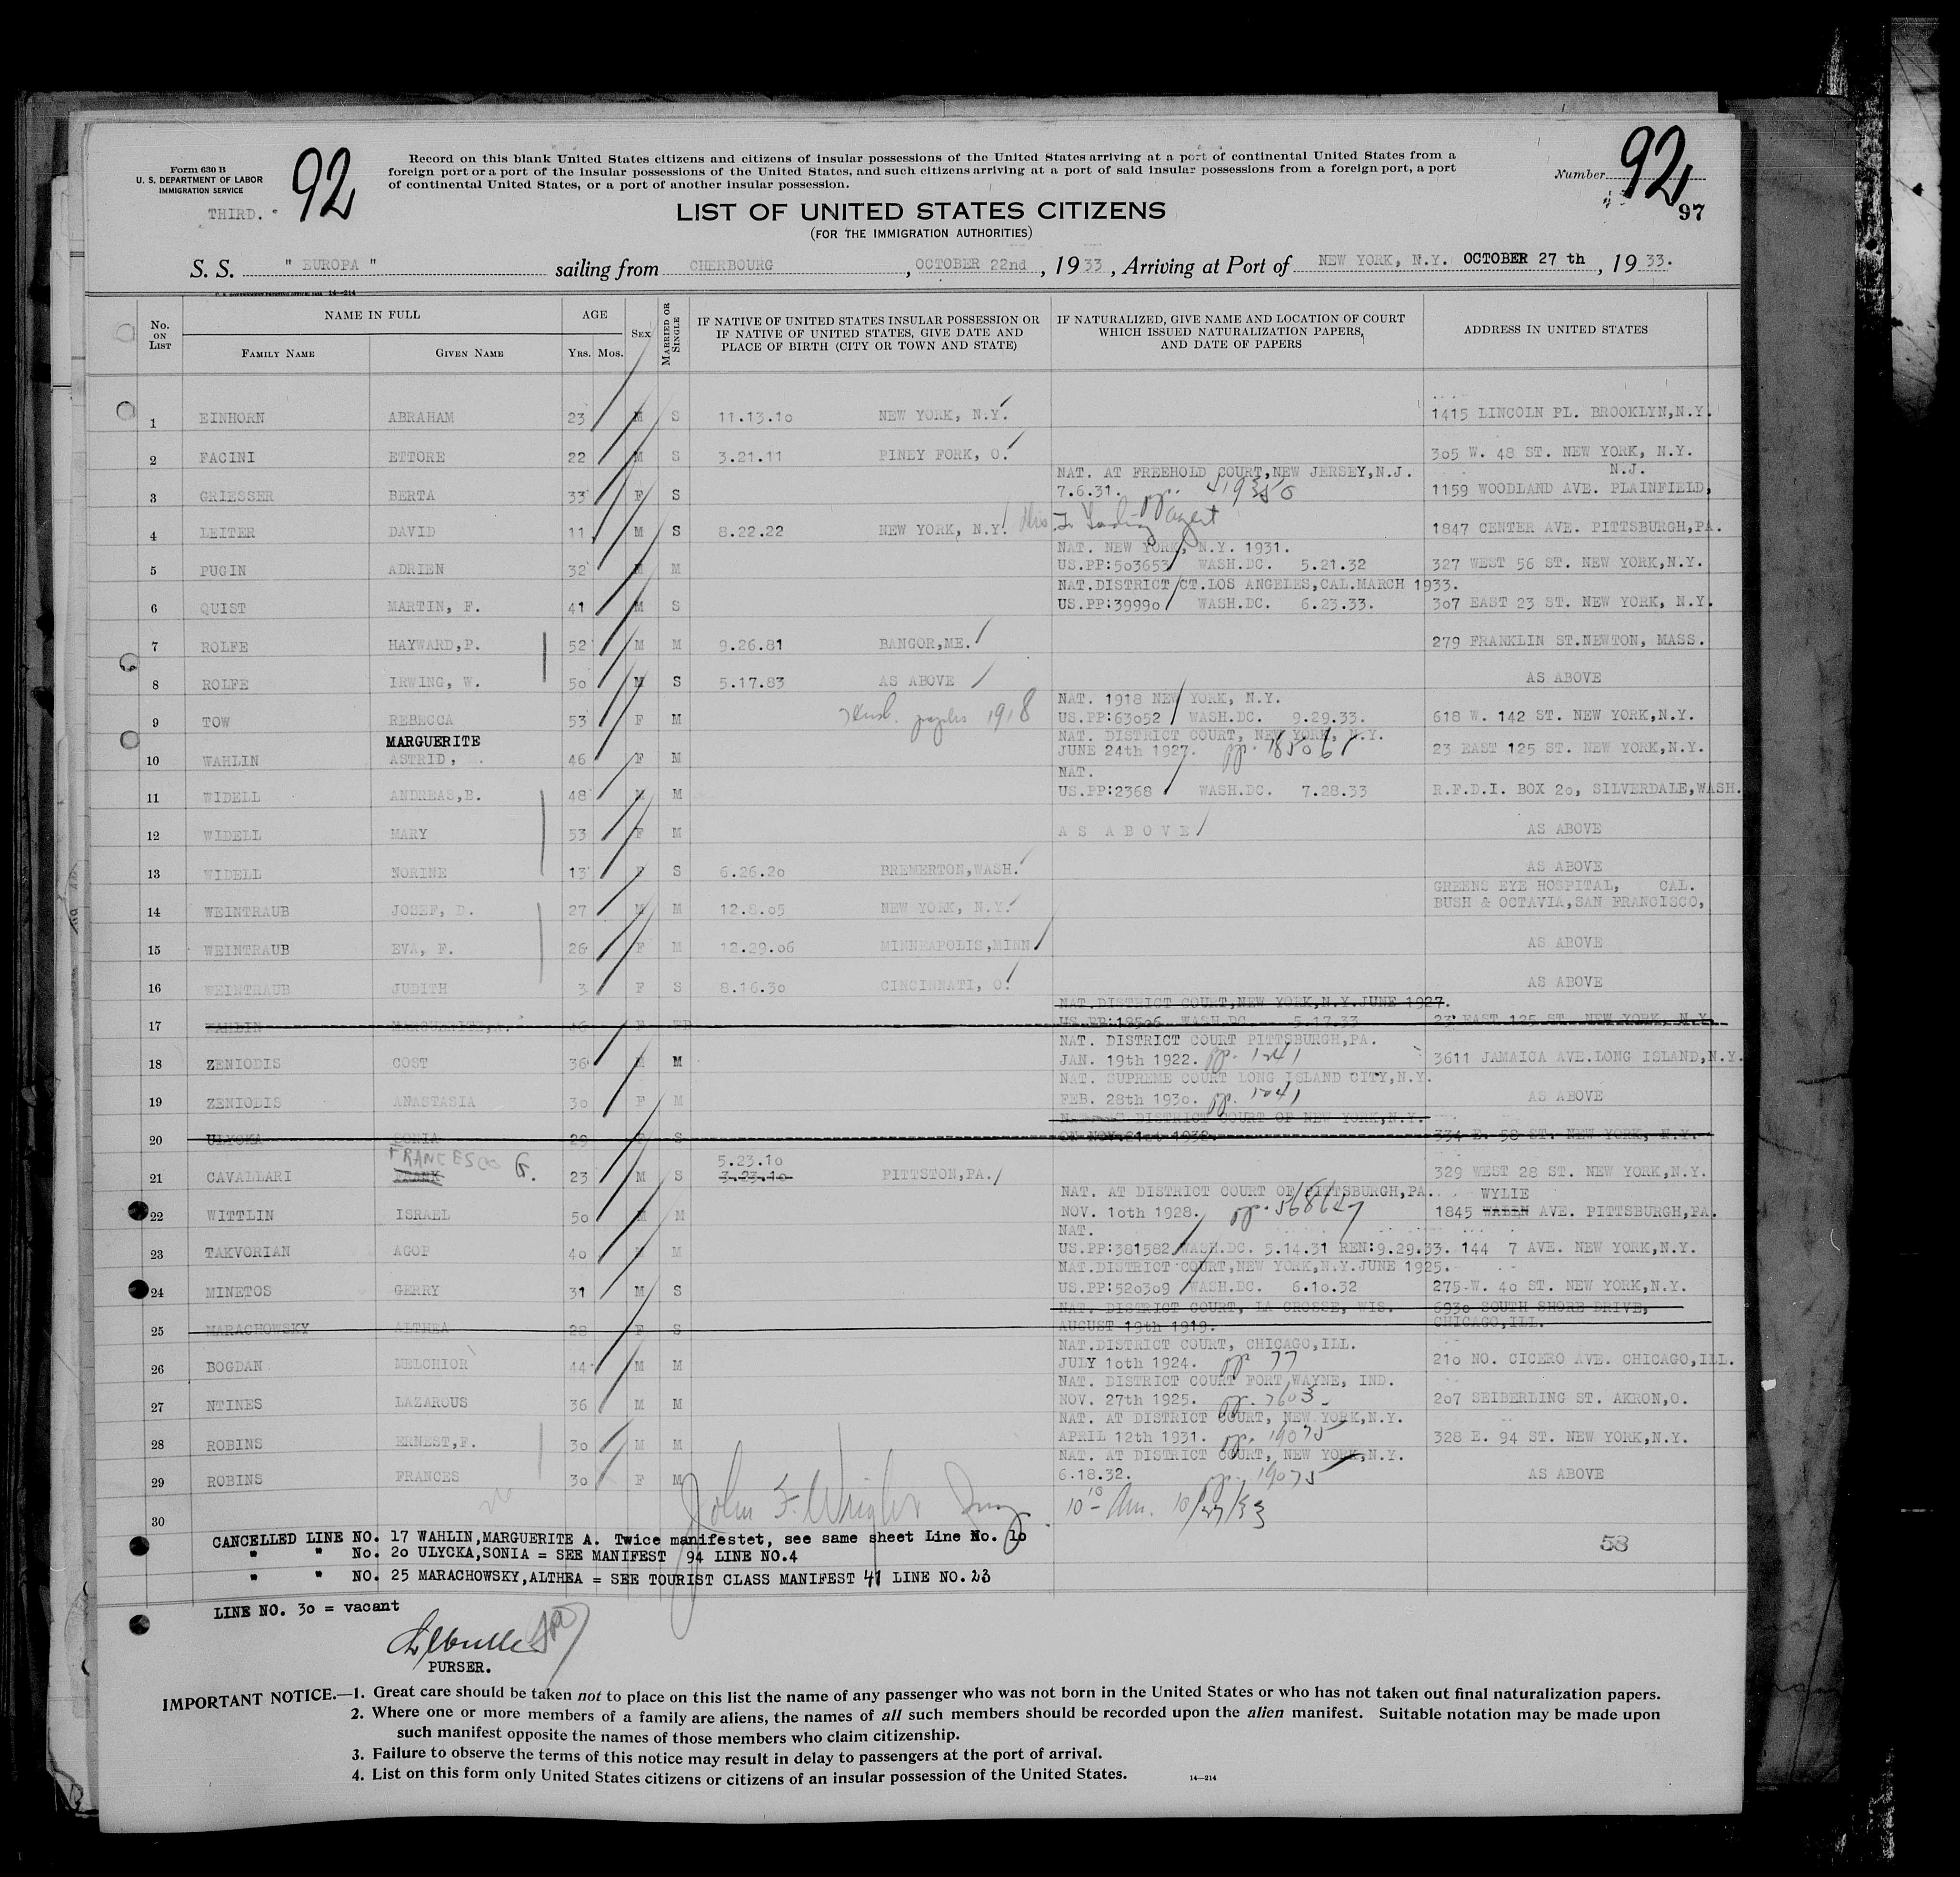 Form 630 B
U. S. DEPARTMENT OF LABOR
IMMIGRATION SERVICE
THIRD.
92
Record on this blank United States citizens and citizens of insular possessions of the United States arriving at a port of continental United States from a
foreign port or a port of the insular possessions of the United States, and such citizens arriving at a port of said insular possessions from a foreign port, a port
of continental United States, or a port of another insular possession.
Number 92
97
LIST OF UNITED STATES CITIZENS
(FOR THE IMMIGRATION AUTHORITIES)
S. S. " EUROPA " sailing from CHERBOURG , OCTOBER 22nd , 19 33 , Arriving at Port of NEW YORK, N.Y. OCTOBER 27 th , 19 33.
14—214
No. ON LIST NAME IN FULL FAMILY NAME GIVEN NAME AGE YRS. MOS. SEX MARRIED OR SINGLE IF NATIVE OF UNITED STATES INSULAR POSSESSION OR IF NATIVE OF UNITED STATES, GIVE DATE AND PLACE OF BIRTH (CITY OR TOWN AND STATE) IF NATURALIZED, GIVE NAME AND LOCATION OF COURT WHICH ISSUED NATURALIZATION PAPERS, AND DATE OF PAPERS ADDRESS IN UNITED STATES
1 EINHORN ABRAHAM 23 M S 11.13.10 NEW YORK, N.Y. 1415 LINCOLN PL. BROOKLYN,N.Y.
2 FACINI ETTORE 22 M S 3.21.11 PINEY FORK, O. 305 W. 48 ST. NEW YORK, N.Y.
NAT. AT FREEHOLD COURT,NEW JERSEY,N.J. N.J.
3 GRIESSER BERTA 33 F S 7.6.31. pp. 419350 1159 WOODLAND AVE. PLAINFIELD,
4 LEITER DAVID 11 M S 8.22.22 NEW YORK, N.Y. agent 1847 CENTER AVE. PITTSBURGH,PA.
NAT. NEW YORK, N.Y. 1931.
5 PUGIN ADRIEN 32 M M US.PP:503653 WASH.DC. 5.21.32 327 WEST 56 ST. NEW YORK,N.Y.
NAT.DISTRICT CT.LOS ANGELES,CAL.MARCH 1933.
6 QUIST MARTIN, F. 41 M S US.PP:39990 WASH.DC. 6.23.33. 307 EAST 23 ST. NEW YORK, N.Y.
7 ROLFE HAYWARD,P. 52 M M 9.26.81 BANGOR,ME. 279 FRANKLIN ST.NEWTON, MASS.
8 ROLFE IRWING, W. 50 M S 5.17.83 AS ABOVE AS ABOVE
NAT. 1918 NEW YORK, N.Y.
9 TOW REBECCA 53 F M Husb. papers 1918 US.PP:63052 WASH.DC. 9.29.33. 618 W. 142 ST. NEW YORK,N.Y.
MARGUERITE NAT. DISTRICT COURT, NEW YORK, N.Y.
10 WAHLIN ASTRID, 46 F M JUNE 24th 1927. pp. 18506 23 EAST 125 ST. NEW YORK,N.Y.
NAT.
11 WIDELL ANDREAS,B. 48 M M US.PP:2368 WASH.DC. 7.28.33 R.F.D.I. BOX 20, SILVERDALE,WASH.
12 WIDELL MARY 53 F M A S A B O V E AS ABOVE
13 WIDELL NORINE 13 F S 6.26.20 BREMERTON,WASH. AS ABOVE
GREENS EYE HOSPITAL, CAL.
14 WEINTRAUB JOSEF, D. 27 M M 12.8.05 NEW YORK, N.Y. BUSH & OCTAVIA,SAN FRANCISCO,
15 WEINTRAUB EVA, F. 26 F M 12.29.06 MINNEAPOLIS,MINN AS ABOVE
16 WEINTRAUB JUDITH 3 F S 8.16.30 CINCINNATI, O. AS ABOVE
NAT.DISTRICT COURT,NEW YORK,N.Y.JUNE 1927.
17 WAHLIN MARGUERITE,A. 46 F US.PP:18506 WASH.DC. 5.17.33 23 EAST 125 ST. NEW YORK, N.Y.
NAT. DISTRICT COURT PITTSBURGH,PA.
18 ZENIODIS COST 36 M M JAN. 19th 1922. pp. 1241 3611 JAMAICA AVE.LONG ISLAND,N.Y.
NAT. SUPREME COURT LONG ISLAND CITY,N.Y.
19 ZENIODIS ANASTASIA 30 F M FEB. 28th 1930. pp. 1241 AS ABOVE
DISTRICT COURT OF NEW YORK,N.Y.
20 ULYCKA SONIA 29 F S ON NOV.21st 1932. 334 E. 58 ST. NEW YORK, N.Y.
FRANCESCO G. 5.23.10
21 CAVALLARI FRANK 23 M S 3.23.10 PITTSTON,PA. 329 WEST 28 ST. NEW YORK,N.Y.
NAT. AT DISTRICT COURT OF PITTSBURGH,PA. WYLIE
22 WITTLIN ISRAEL 50 M M NOV. 10th 1928. pp. 568627 1845 WALEN AVE. PITTSBURGH,PA.
NAT.
23 TAKVORIAN AGOP 40 M M US.PP:381582 WASH.DC. 5.14.31 REN:9.29.33. 144 7 AVE. NEW YORK,N.Y.
NAT.DISTRICT COURT,NEW YORK,N.Y.JUNE 1925.
24 MINETOS GERRY 31 M S US.PP:520309 WASH.DC. 6.10.32 275 W. 40 ST. NEW YORK,N.Y.
NAT. DISTRICT COURT, LA CROSSE, WIS. 6930 SOUTH SHORE DRIVE,
25 MARACHOWSKY ALTHEA 28 F S AUGUST 19th 1919. CHICAGO,ILL.
NAT.DISTRICT COURT, CHICAGO,ILL.
26 BOGDAN MELCHIOR 44 M M JULY 10th 1924. pp 77 210 NO. CICERO AVE. CHICAGO,ILL.
NAT. DISTRICT COURT FORT WAYNE, IND.
27 NTINES LAZAROUS 36 M M NOV. 27th 1925. pp. 7603 207 SEIBERLING ST. AKRON,O.
NAT. AT DISTRICT COURT, NEW YORK,N.Y.
28 ROBINS ERNEST,F. 30 M M APRIL 12th 1931. pp. 19075 328 E. 94 ST. NEW YORK,N.Y.
NAT. AT DISTRICT COURT, NEW YORK,N.Y.
29 ROBINS FRANCES 30 F M 6.18.32. pp. 19075 AS ABOVE
30 John F. Wrigler 10 10 Am. 10/27/33
CANCELLED LINE NO. 17 WAHLIN,MARGUERITE A. Twice manifestet, see same sheet Line No. 10
" " No. 20 ULYCKA,SONIA = SEE MANIFEST 94 LINE NO.4
58
" " NO. 25 MARACHOWSKY,ALTHEA = SEE TOURIST CLASS MANIFEST 41 LINE NO. 23
LINE NO. 30 = vacant
PURSER.
IMPORTANT NOTICE.—1. Great care should be taken not to place on this list the name of any passenger who was not born in the United States or who has not taken out final naturalization papers.
2. Where one or more members of a family are aliens, the names of all such members should be recorded upon the alien manifest. Suitable notation may be made upon
such manifest opposite the names of those members who claim citizenship.
3. Failure to observe the terms of this notice may result in delay to passengers at the port of arrival.
4. List on this form only United States citizens or citizens of an insular possession of the United States.
14—214